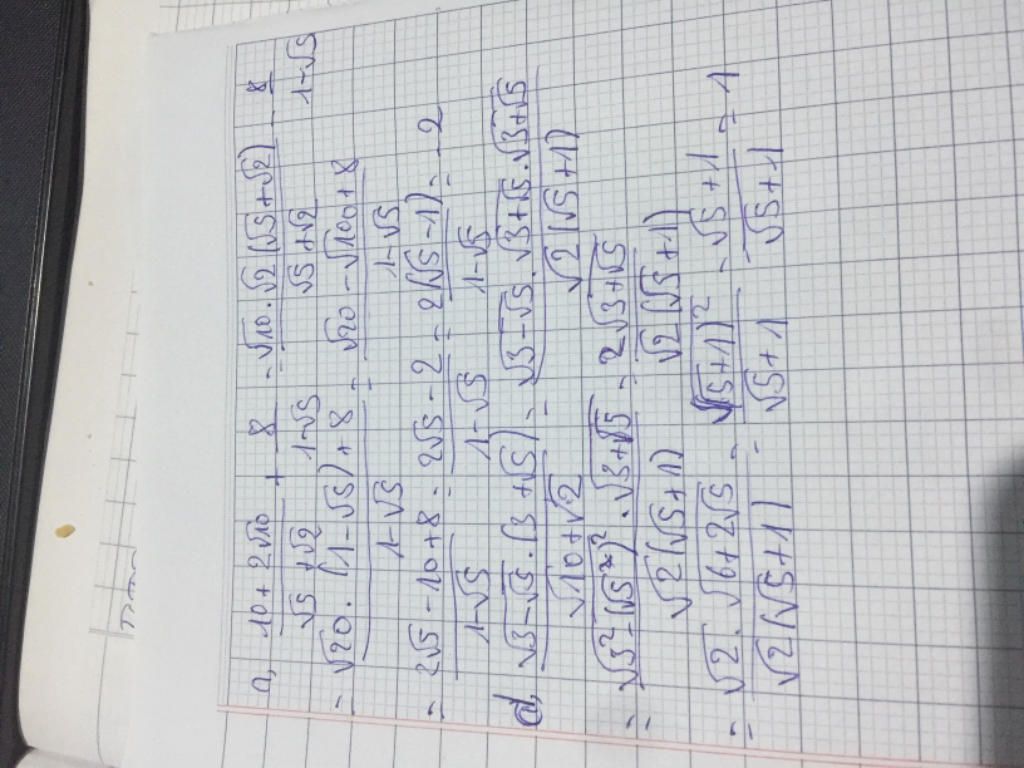 a, (10 + 2√10)/(√5 + √2) + 8/(1-√5) = (√10 . √2 (√5 + √2))/(√5 + √2) - 8/(1-√5)
= (√20 . (1-√5) + 8)/(1-√5) = (√20 - √100 + 8)/(1-√5)
= (2√5 - 10 + 8)/(1-√5) = (2√5 - 2)/(1-√5) = (2(√5 - 1))/(1-√5) = -2
d, (√(3-√5) . (3+√5))/(√10 + √2) = (√(3-√5) . √(3+√5) . √(3+√5))/(√2 (√5 + 1))
= (√(3² - (√5)²) . √(3+√5))/(√2 (√5 + 1)) = (2√(3+√5))/(√2 (√5 + 1))
= (√2 . √(6+2√5))/(√2 (√5 + 1)) = √((√5+1)²)/(√5 + 1) = (√5 + 1)/(√5 + 1) = 1